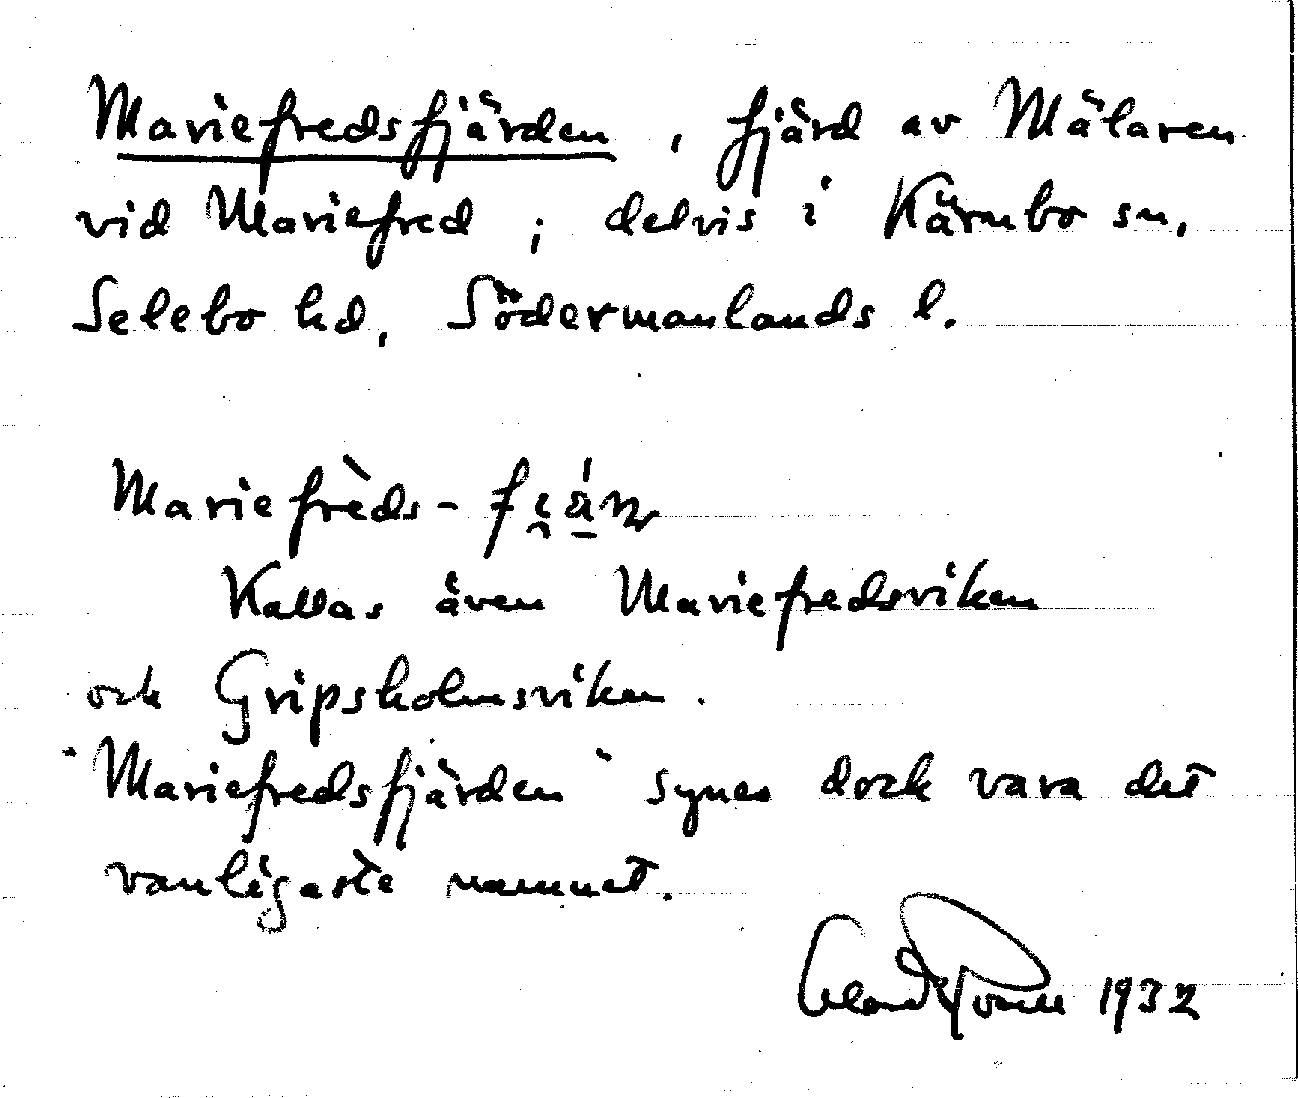 Mariefredsfjärden, fjärd av Mälaren
vid Mariefred; delvis i Kärnbo sn,
Selebo hd, Södermanlands l.
Mariefrèds-
Kallas även Mariefredsviken
och Gripsholmsviken.
"Mariefredsfjärden" synes dock vara det
vanligaste namnet.
1932